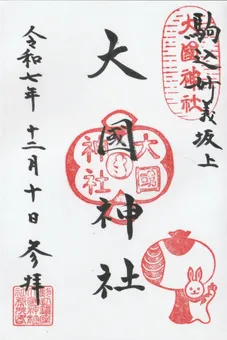 駒込妙義坂上
大國神社
大國神社
大國
神社
令和七年 十二月十日 参拝